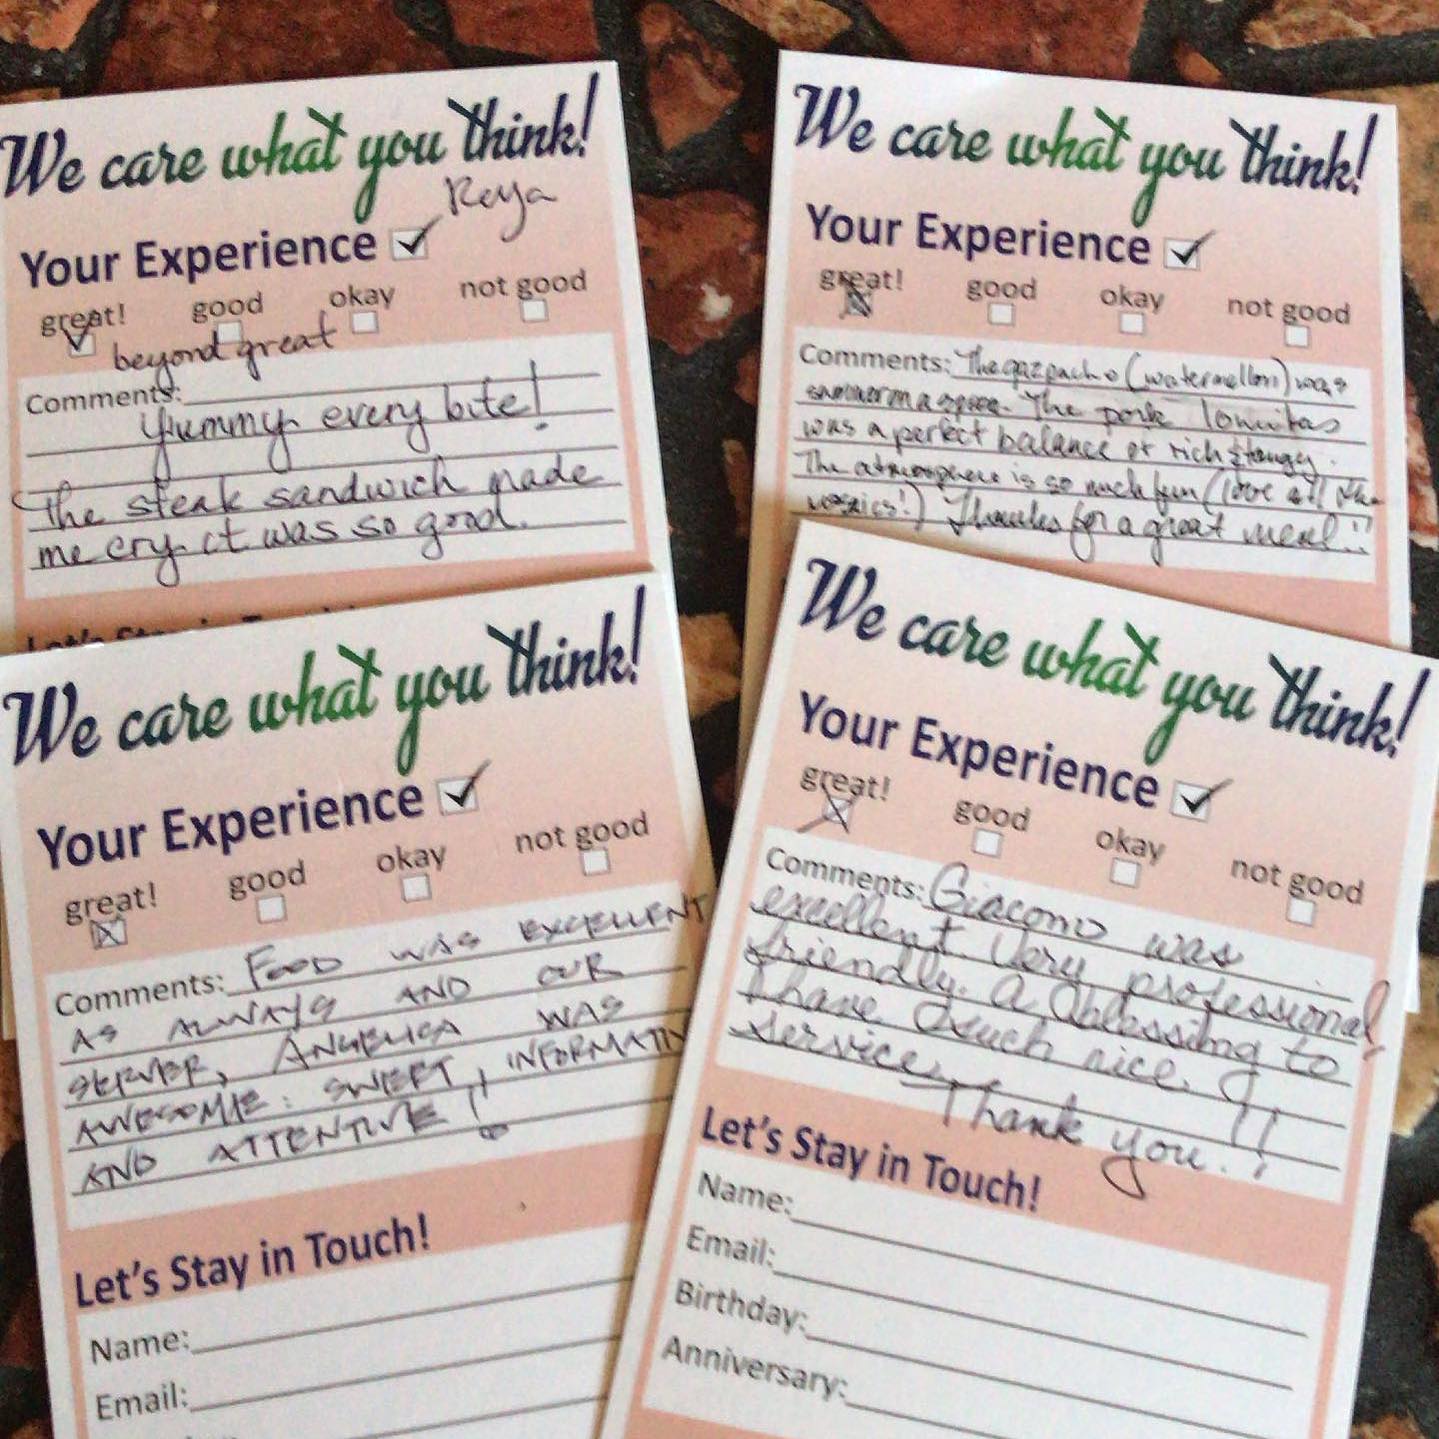 We care what you think!
Your Experience
great! good okay not good
beyond great
Comments:
Yummy every bite!
The steak sandwich made
me cry it was so good.
Let's Stay in
We care what you think!
Your Experience
great! good okay not good
Comments: The gazpacho (watermellon) was
summer in a spoon. The pork lomitas
was a perfect balance of rich & tangy.
The atmosphere is so much fun (love all the
mosaics!) Thanks for a great meal!!
We care what you think!
Your Experience
great! good okay not good
Comments: FOOD WAS EXCELLENT
AS ALWAYS AND OUR
SERVER, ANGELICA WAS
AWESOME: SWEET, INFORMATIV
AND ATTENTIVE!!
Let's Stay in Touch!
Name:
Email:
We care what you think!
Your Experience
great! good okay not good
Comments: Giacomo was
excellent. Very professional,
friendly. A blessing to
have such nice
service. Thank you.!!
Let's Stay in Touch!
Name:
Email:
Birthday:
Anniversary: